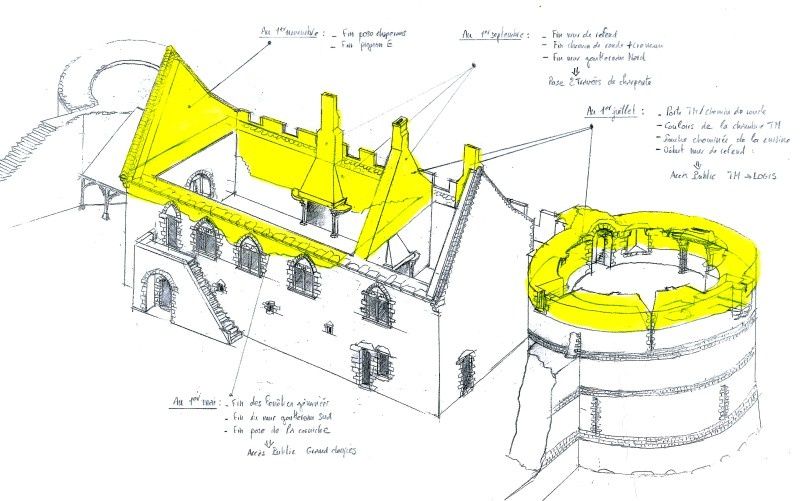 Au 1er novembre : - Fin pose chaperons
- Fin pignon E
Au 1er septembre : - Fin mur de refend
- Fin chemin de ronde + créneau
- Fin mur gouttereau Nord
⇓
Pose 2 travées de charpente
Au 1er juillet : - Porte TM/chemin de ronde
- Couloirs de la chambre TM
- Souche cheminée de la cuisine
- Début mur de refend :
⇓
Accès Public TM → LOGIS
Au 1er mai : - Fin des fenêtres géminées
- Fin du mur gouttereau Sud
- Fin pose de la corniche
⇓
Accès Public Grand degrés